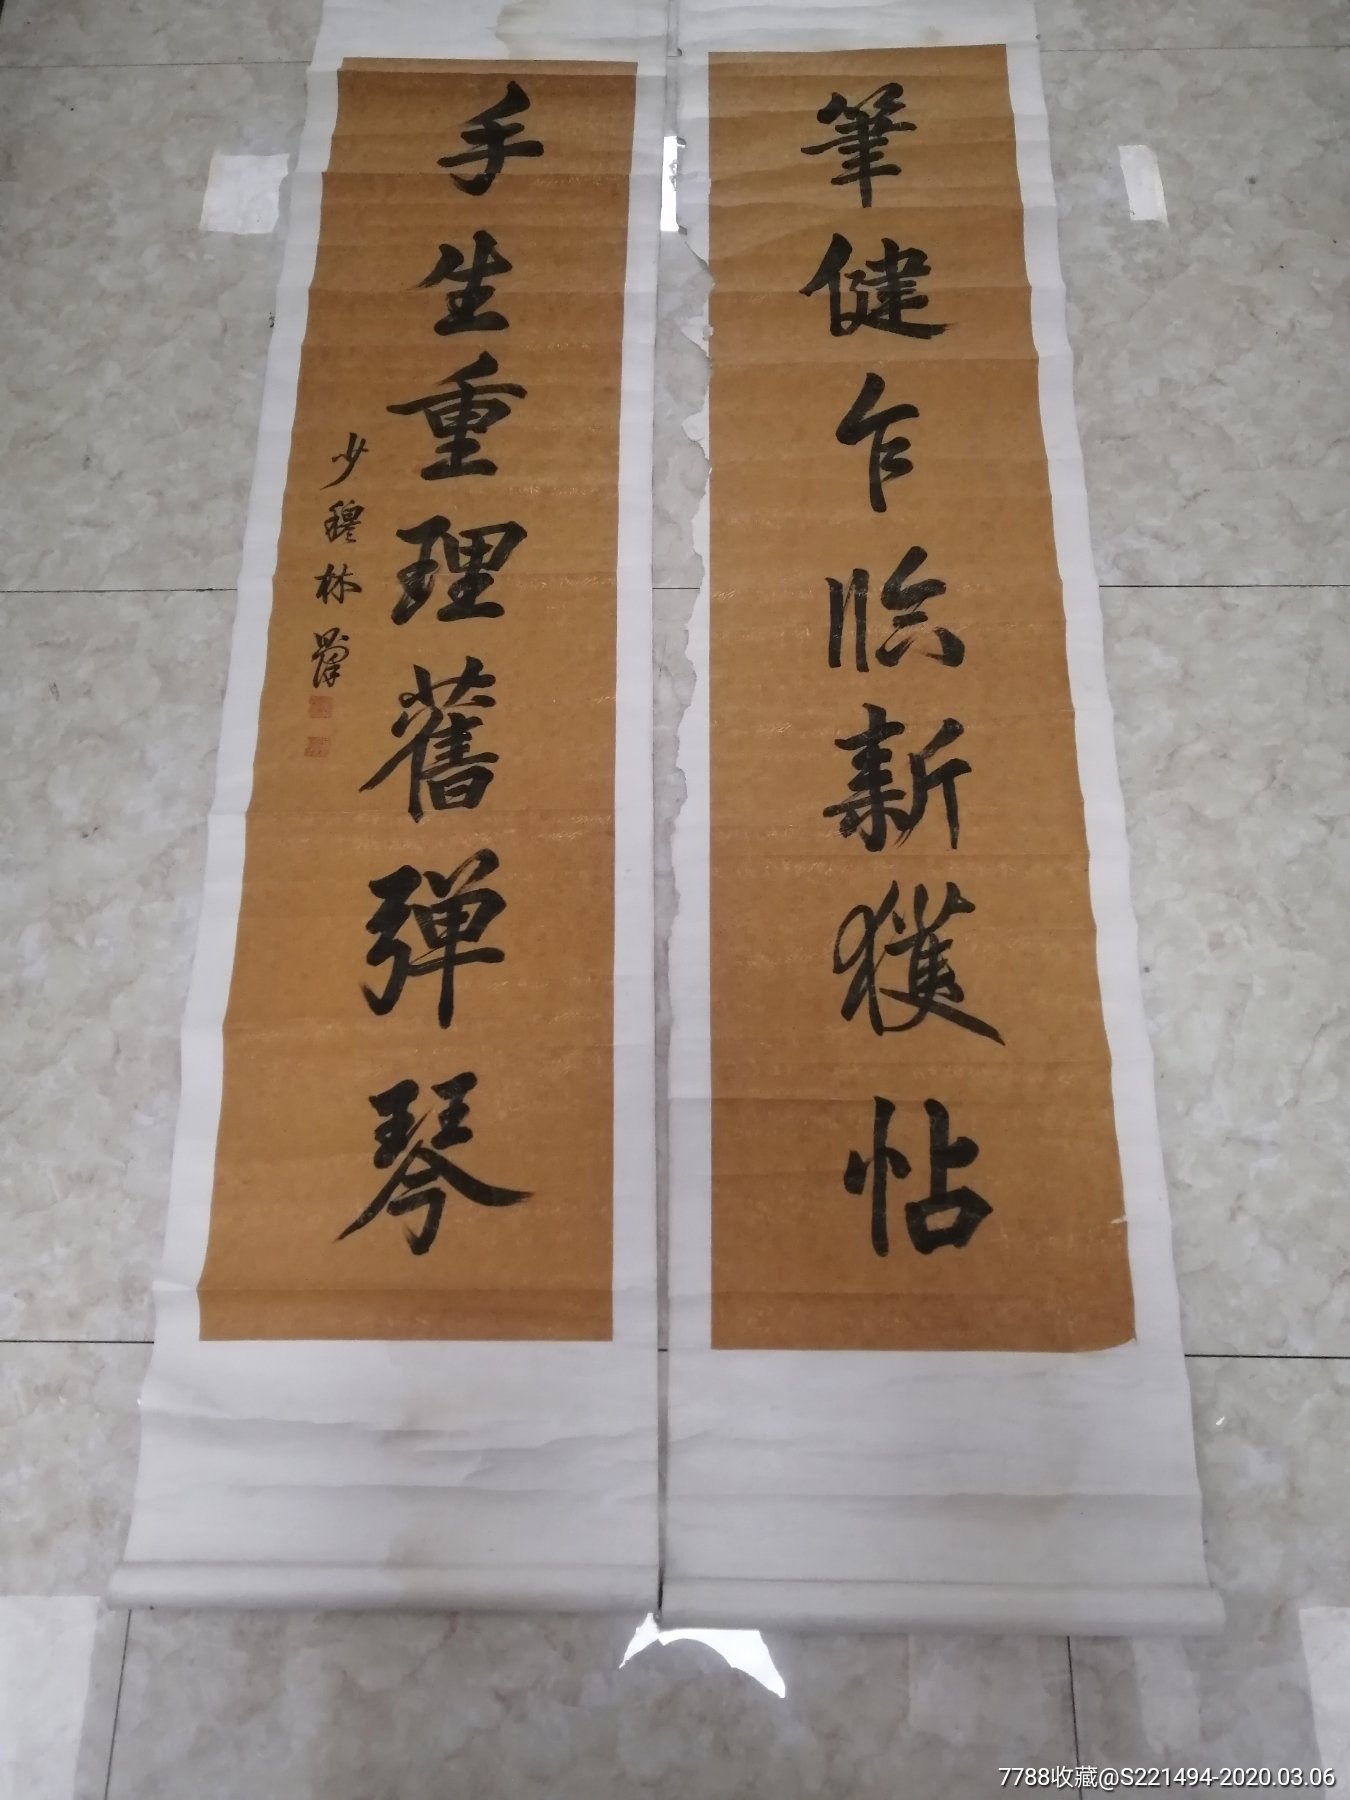 筆健乍临新獲帖
手生重理舊彈琴
少穆林
7788收藏@S221494-2020.03.06